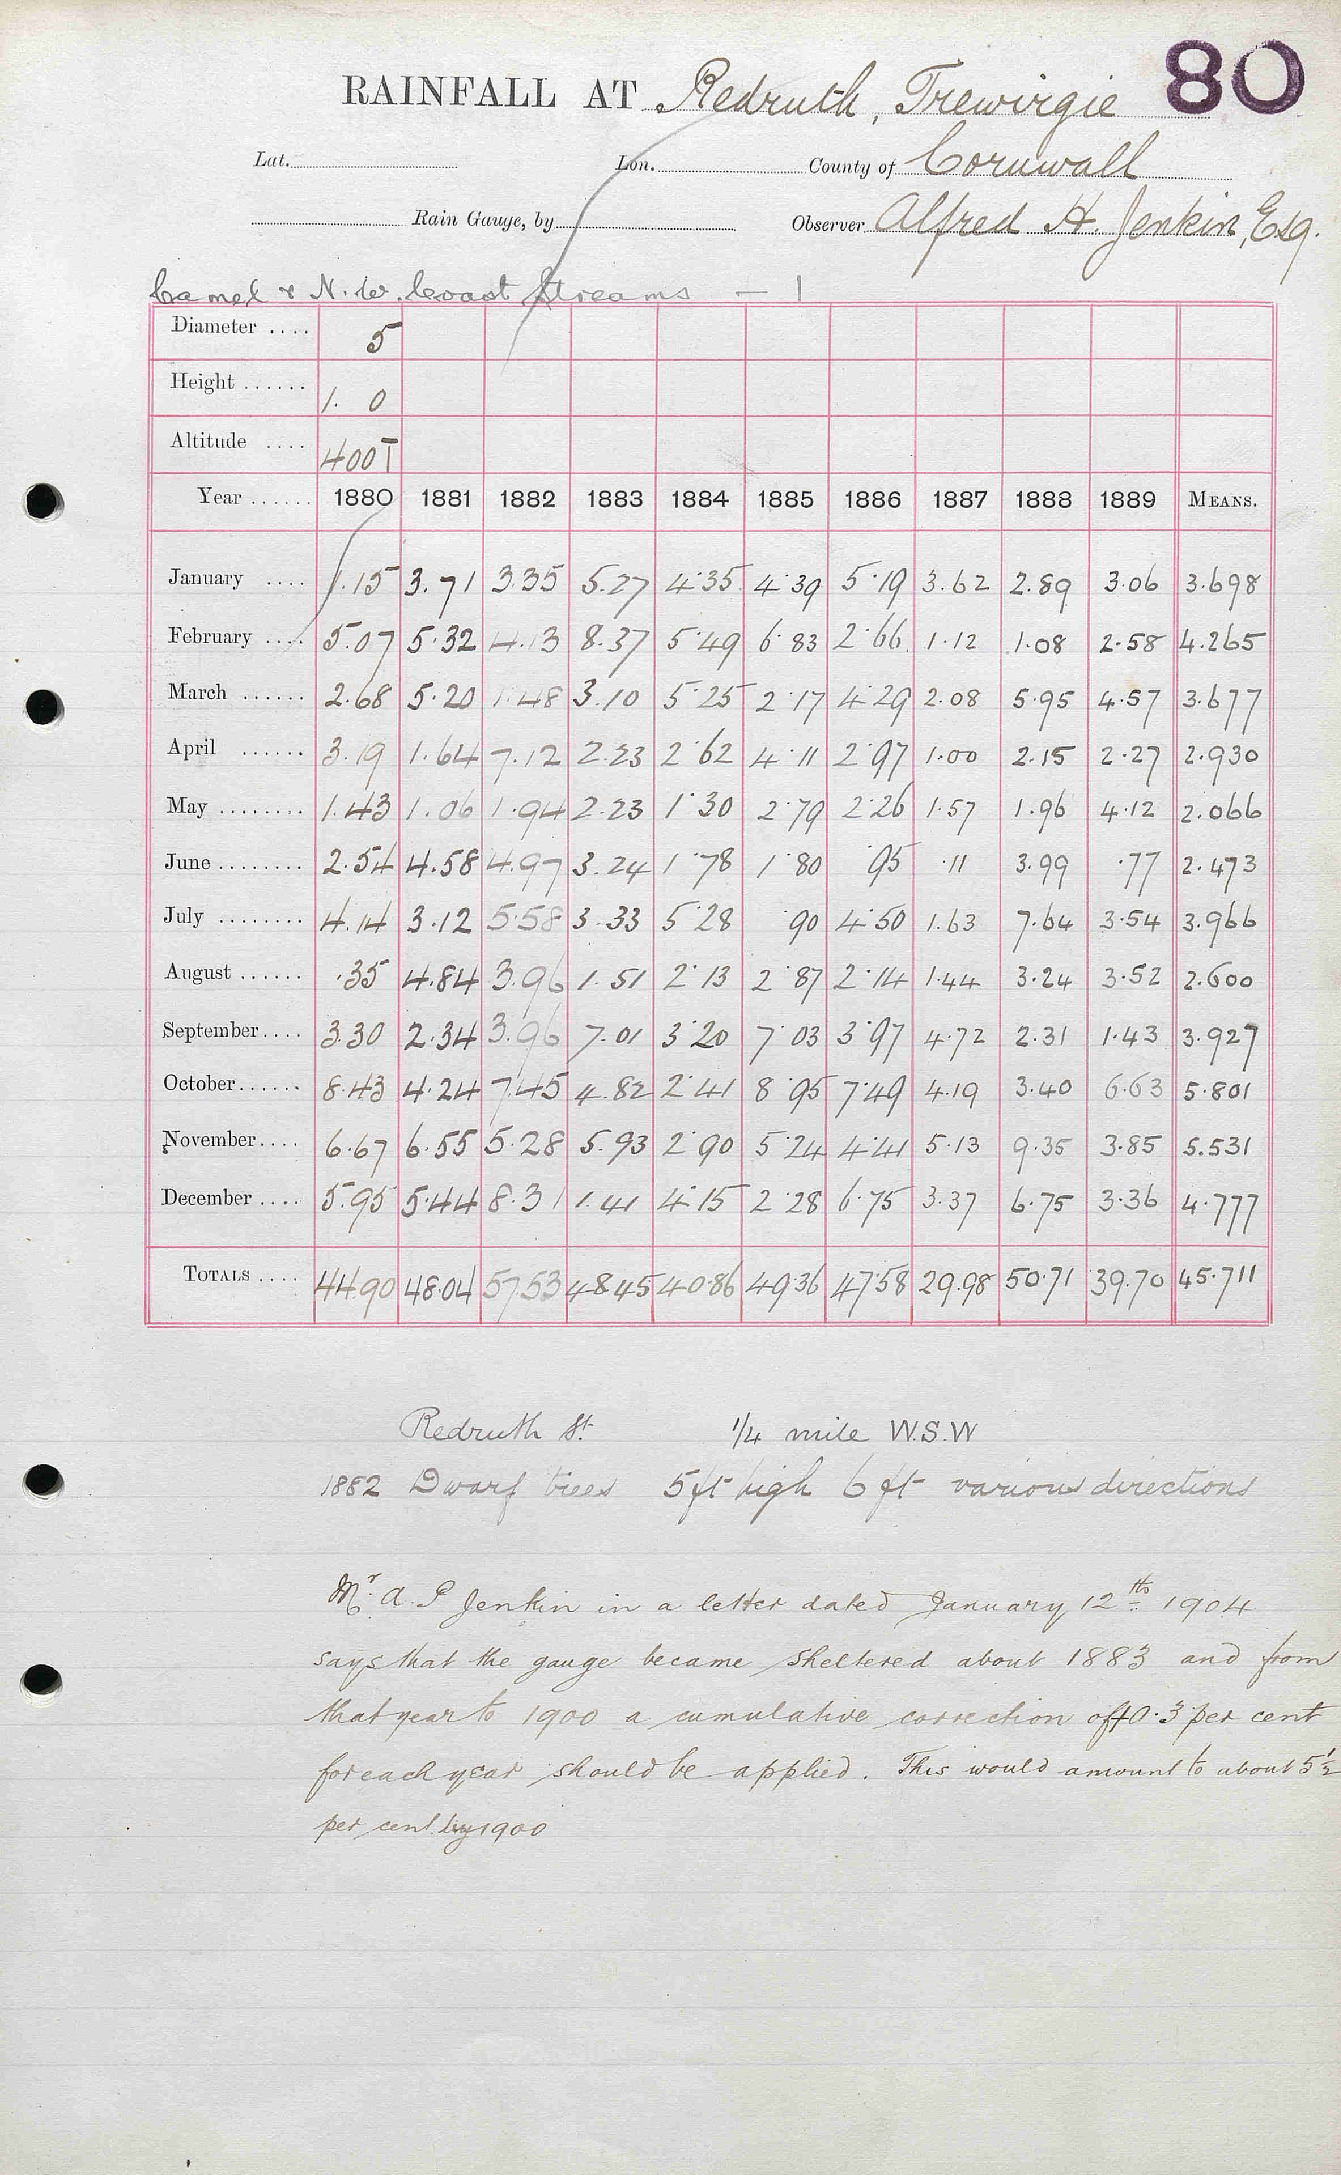 80
RAINFALL AT Redruth, Trewirgie
Lat. Lon. County of Cornwall
Rain Gauge, by Observer Alfred H. Jenkin, Esq.
Camel & N.W. Coast Streams — 1
Diameter .... 5
Height ...... 1. 0
Altitude .... 400T
Year ...... 1880 1881 1882 1883 1884 1885 1886 1887 1888 1889 MEANS.
January .... 1.15 3.71 3.35 5.27 4.35 4.39 5.19 3.62 2.89 3.06 3.698
February .... 5.07 5.32 4.13 8.37 5.49 6.83 2.66 1.12 1.08 2.58 4.265
March ...... 2.68 5.20 1.48 3.10 5.25 2.17 4.29 2.08 5.95 4.57 3.677
April ...... 3.19 1.64 7.12 2.23 2.62 4.11 2.97 1.00 2.15 2.27 2.930
May ........ 1.43 1.06 1.94 2.23 1.30 2.79 2.26 1.57 1.96 4.12 2.066
June ........ 2.54 4.58 4.97 3.24 1.78 1.80 .95 .11 3.99 .77 2.473
July ........ 4.14 3.12 5.58 3.33 5.28 .90 4.50 1.63 7.64 3.54 3.966
August ...... .35 4.84 3.96 1.51 2.13 2.87 2.14 1.44 3.24 3.52 2.600
September .... 3.30 2.34 3.96 7.01 3.20 7.03 3.97 4.72 2.31 1.43 3.927
October ...... 8.43 4.24 7.45 4.82 2.41 8.95 7.49 4.19 3.40 6.63 5.801
November .... 6.67 6.55 5.28 5.93 2.90 5.24 4.41 5.13 9.35 3.85 5.531
December .... 5.95 5.44 8.31 1.41 4.15 2.28 6.75 3.37 6.75 3.36 4.777
TOTALS .... 44.90 48.04 57.53 48.45 40.86 49.36 47.58 29.98 50.71 39.70 45.711
Redruth St. 1/4 mile W.S.W
1882 Dwarf trees 5ft high 6 ft various directions
Mr. A. P Jenkin in a letter dated January 12th 1904
says that the gauge became sheltered about 1883 and from
that year to 1900 a cumulative correction of +0.3 per cent
for each year should be applied. This would amount to about 5½
per cent by 1900